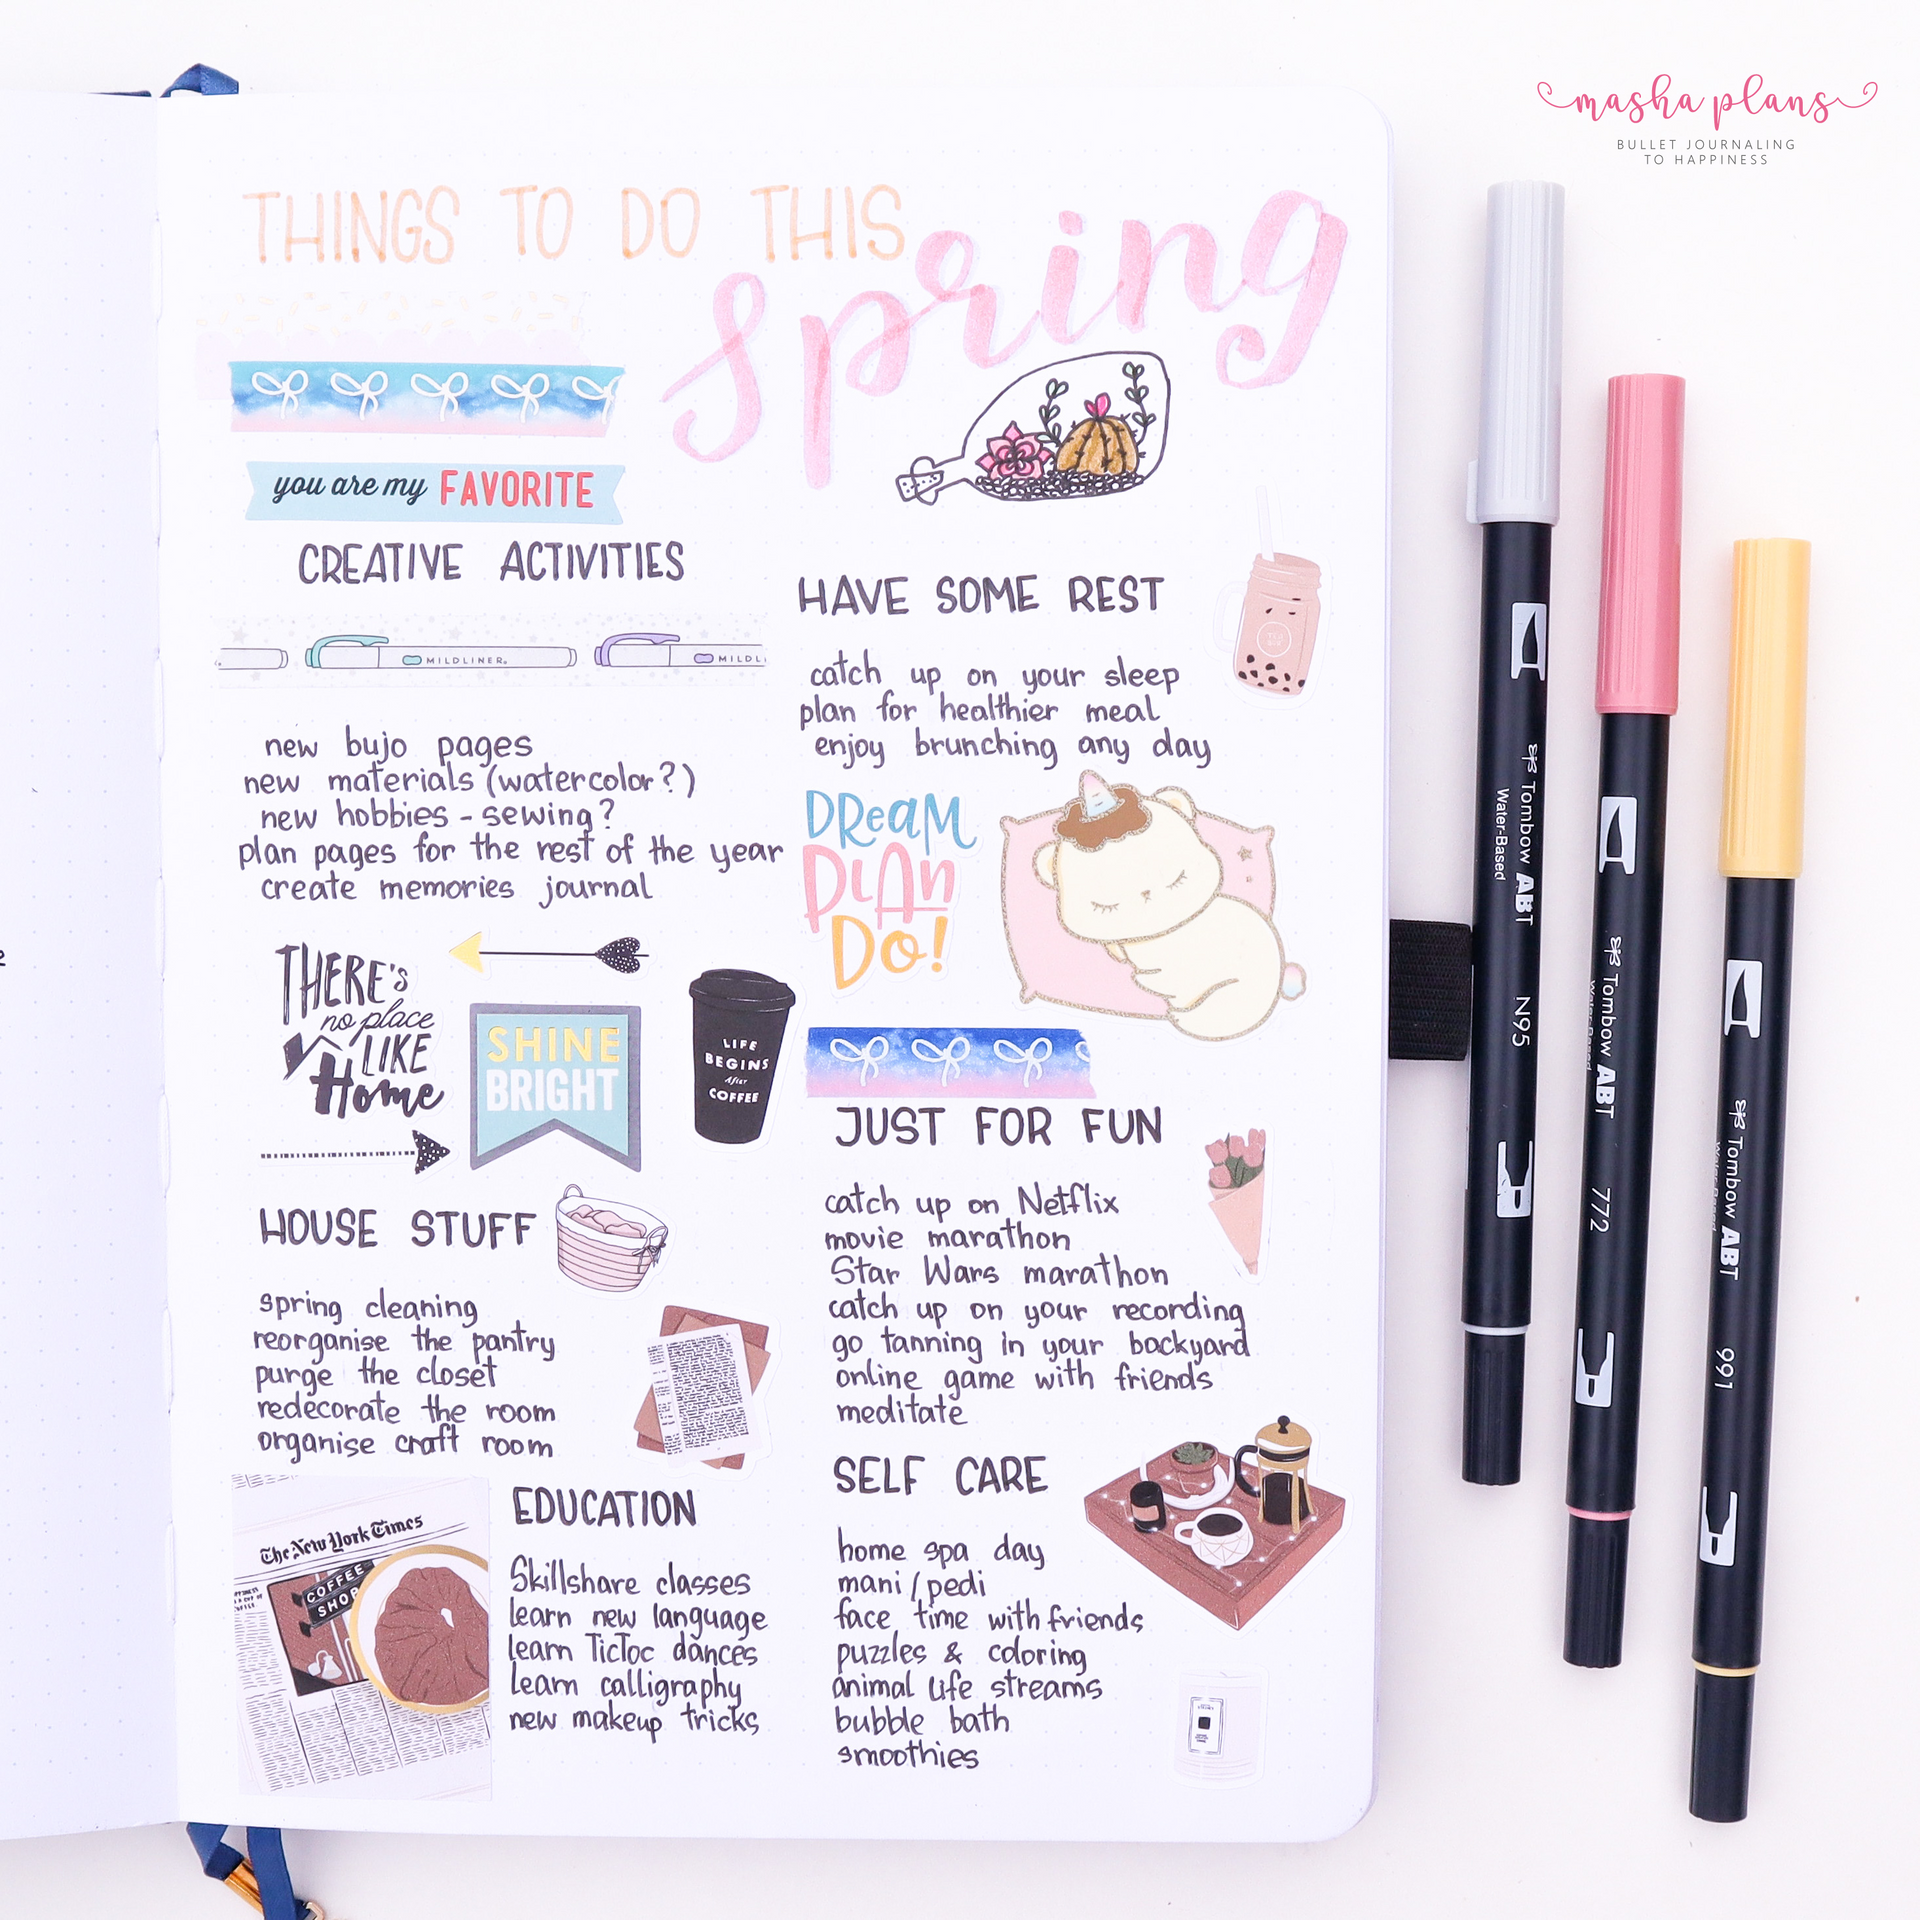 masha plans
BULLET JOURNALING
TO HAPPINESS
THINGS TO DO THIS
Spring
you are my FAVORITE
CREATIVE ACTIVITIES
MILDLINER
MILDLI
new bujo pages
new materials (watercolor?)
new hobbies - sewing?
plan pages for the rest of the year
create memories journal
THERE'S
no place
LIKE
Home
SHINE
BRIGHT
LIFE
BEGINS
After
COFFEE
HOUSE STUFF
spring cleaning
reorganise the pantry
purge the closet
redecorate the room
organise craft room
The New York Times
COFFEE
SHOP
EDUCATION
Skillshare classes
learn new language
learn TicToc dances
learn calligraphy
new makeup tricks
HAVE SOME REST
catch up on your sleep
plan for healthier meal
enjoy brunching any day
DREAM
PLAN
DO!
JUST FOR FUN
catch up on Netflix
movie marathon
Star Wars marathon
catch up on your recording
go tanning in your backyard
online game with friends
meditate
SELF CARE
home spa day
mani/pedi
face time with friends
puzzles & coloring
animal life streams
bubble bath
smoothies
Tombow ABT N95
Water-Based
Tombow ABT 772
Water-Based
Tombow ABT 991
Water-Based